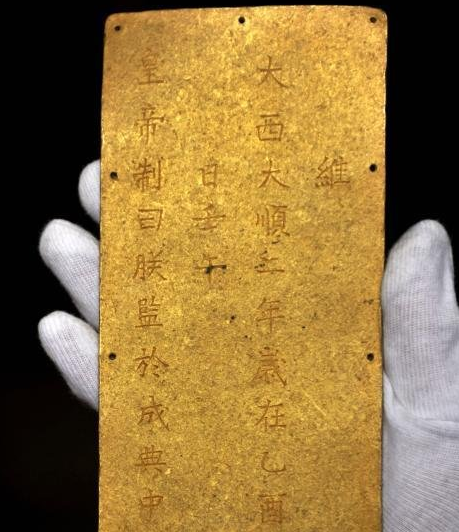 維
大西大順二年歲在乙酉
日壬午
皇帝制曰朕監於成典中